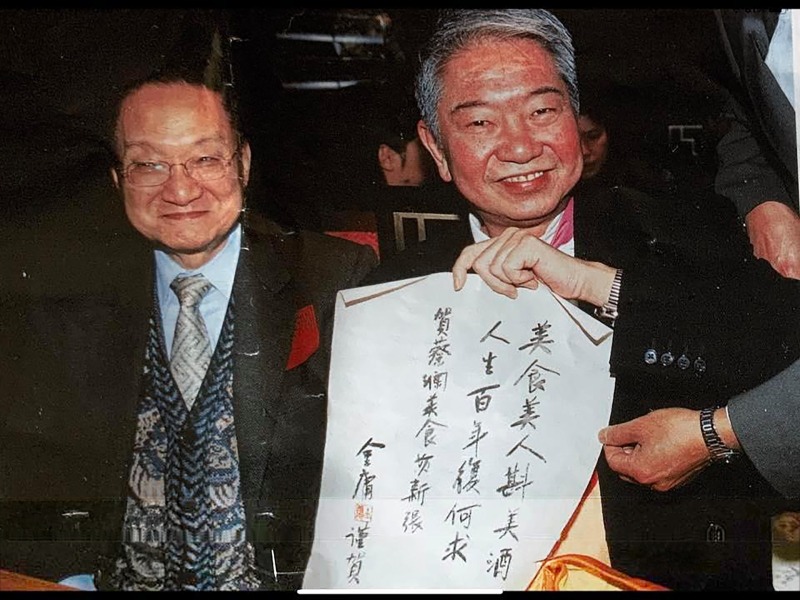 美食美人斟美酒
人生百年復何求
賀蔡瀾美食坊新張
金庸謹賀